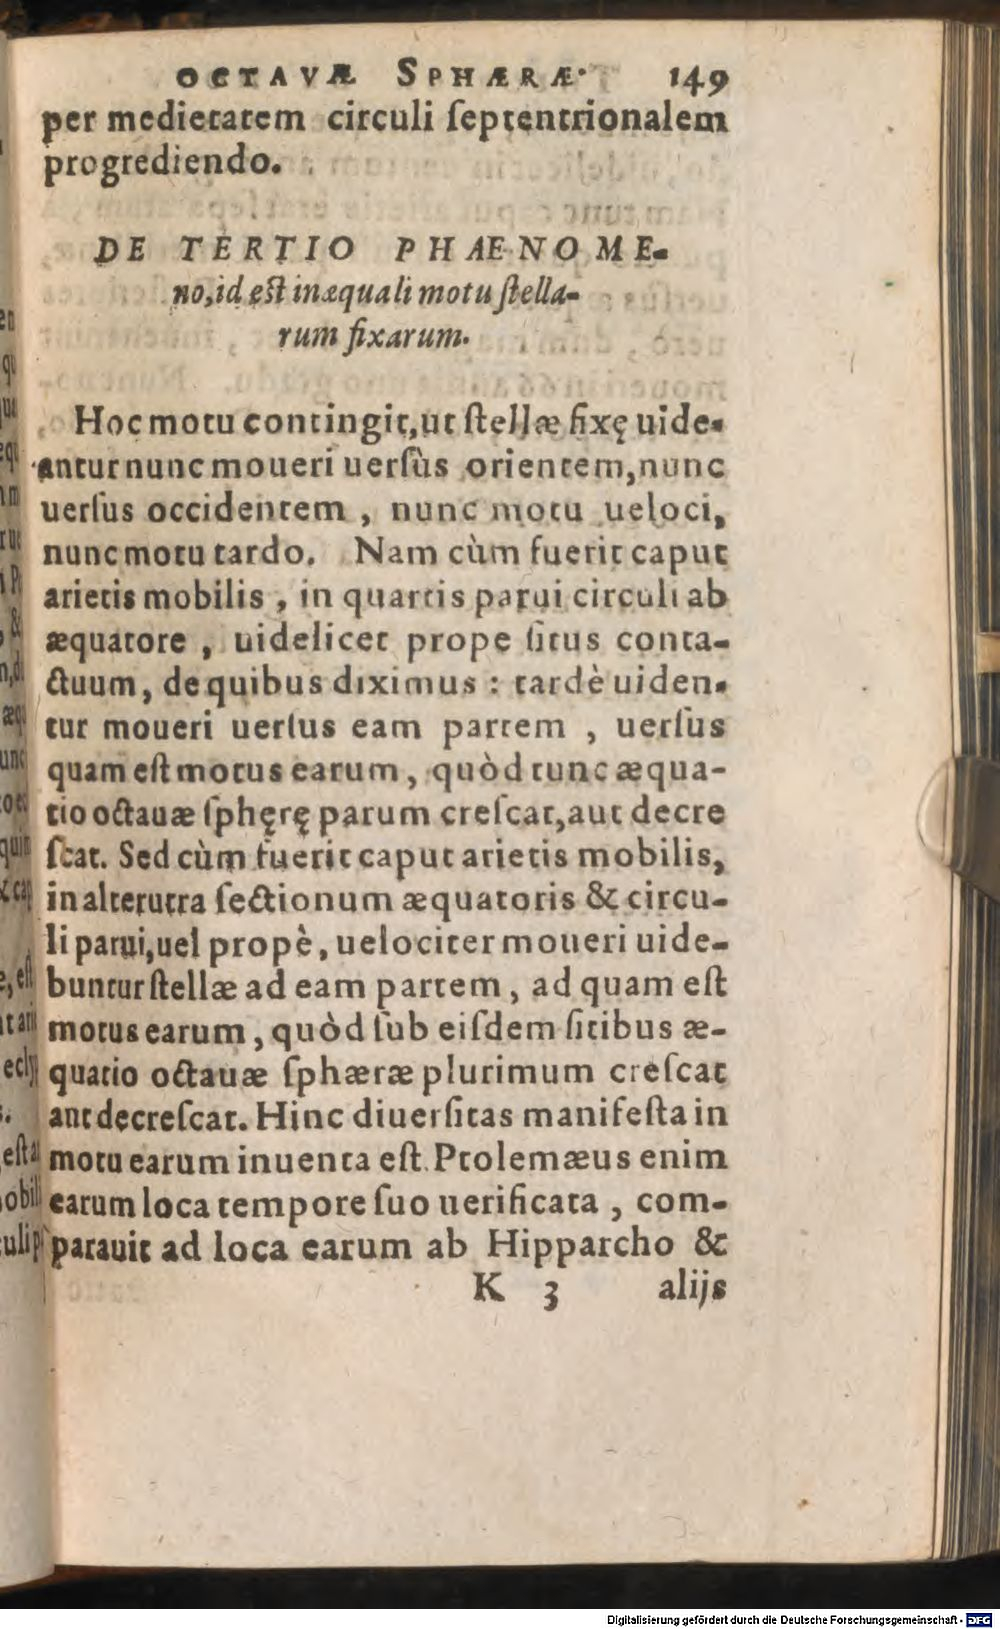 OCTAVÆ SPHÆRÆ. 149
per medietatem circuli ſeptentrionalem
progrediendo.
DE TERTIO PHAENOME-
no, id eſt inæquali motu ſtella-
rum fixarum.
Hoc motu contingit, ut ſtellæ fixę uide-
antur nunc moueri uerſùs orientem, nunc
uerſus occidentem, nunc motu ueloci,
nunc motu tardo. Nam cùm fuerit caput
arietis mobilis, in quartis parui circuli ab
æquatore, uidelicet prope ſitus conta-
ctuum, de quibus diximus: tardè uiden-
tur moueri uerſus eam partem, uerſus
quam eſt motus earum, quòd tunc æqua-
tio octauæ ſphęrę parum creſcat, aut decre
ſcat. Sed cùm fuerit caput arietis mobilis,
in alterutra ſectionum æquatoris & circu-
li parui, uel propè, uelociter moueri uide-
buntur ſtellæ ad eam partem, ad quam eſt
motus earum, quòd ſub eiſdem ſitibus æ-
quatio octauæ ſphæræ plurimum creſcat
aut decreſcat. Hinc diuerſitas manifeſta in
motu earum inuenta eſt. Ptolemæus enim
earum loca tempore ſuo uerificata, com-
parauit ad loca earum ab Hipparcho &
K 3 alijs
Digitalisierung gefördert durch die Deutsche Forschungsgemeinschaft - DFG